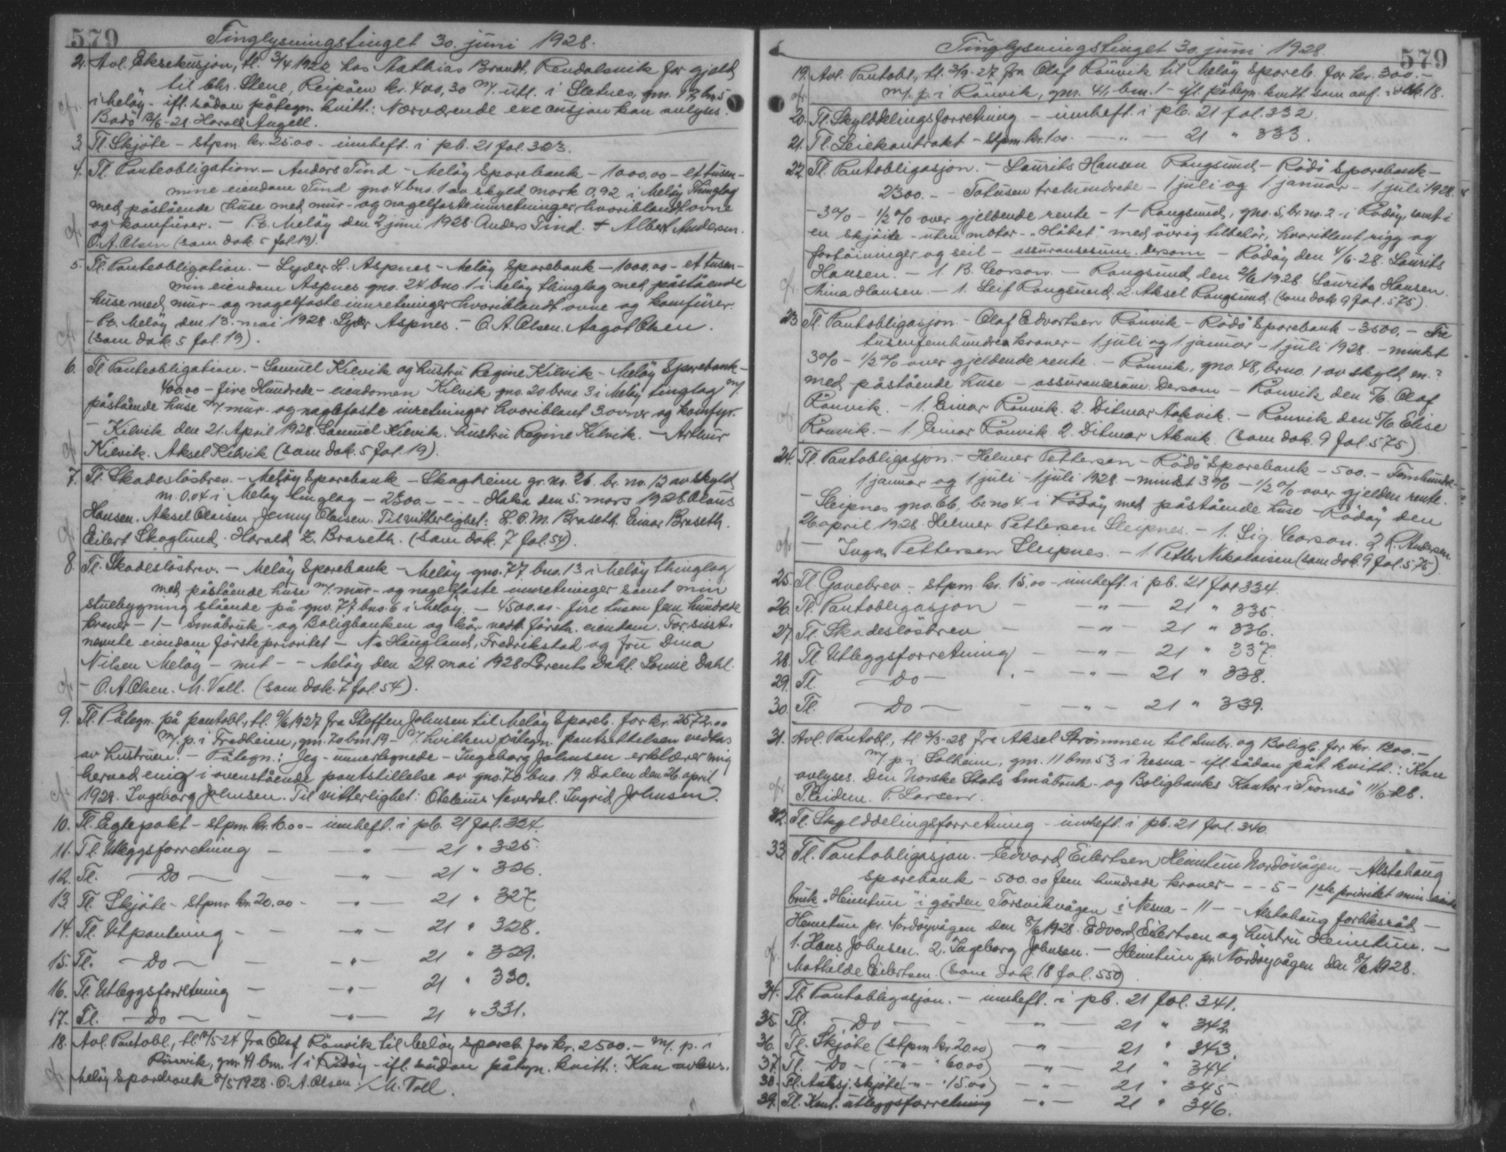 579
Tinglysningstinget 30. juni 1928.
2. Avl. Eksekusjon, tl. 3/4 1922 hos Mathias Brandt, Rendalsvik for gjeld
til bhr. Stene, Reipåen kr. 400,30 m/ utl. i Sletnes, gnr. bn 5
i Meløy - ifl. sådan påtegn. kvitt: Nærværende execusjon kan avlyses.
Bodø 13/6-28 Harald Angell.
3. Tl. Skjöte - stpm. kr. 25.00 - innheft. i pb. 21 fol. 323.
4. Tl. Panteobligation. - Anders Tind - Meløy Sparebank - 1000,00 - et tusen -
mine eiendom Tind gno 4 bno 1 av skyld mark 0,92 i Meløy Thinglag
med påstående huse med mur- og nagelfaste innretninger hvoriblandt ovne
og komfürer. - P.t. Meløy den 2 juni 1928 Anders Tind. + Albert Andersen.
O.A. Olsen (som dok 5 fol 19).
5. Tl. Panteobligation. - Lyder L. Aspnes - Meløy Sparebank - 1000,00 - et tusen -
min eiendom Aspnes gno. 24 bno 1 i Meløy thinglag med påstående
huse med mur- og nagelfaste innretninger hvoriblandt ovne og komfürer.
- P.t. Meløy den 13. mai 1928. Lyder Aspnes. - O.A. Olsen. Aagot Olsen.
(som dok. 5 fol. 19).
6. Tl. Panteobligation. - Samuel Kilvik og hustru Regine Kilvik - Meløy Sparebank -
400.00 - fire Hundrede - eiendommen Kilvik gno. 20 brno 3 i Meløy tinglag m/
påstående huse m/ mur- og naglefaste inretninger hvoriblant 3 ovner og komfyr.
- Kilvik den 21. April 1928. Samuel Kilvik. hustru Regine Kilvik. - Arthur
Kilvik. Aksel Kilvik (som dok. 5 fol. 19).
7. Tl. Skadesløsbrev. - Meløy Sparebank - Skogheim gr. no. 26. br. no. 13 av skyld
m. 0,04 i Meløy tinglag - 2800 - - - Halsa den 5. mars 1928 Olaus
Hansen. Aksel Olaisen Jenny Olaisen. Til vitterlighet: L.P.M. Braseth. Einar Braseth.
Eilert Skoglund. Harald Z. Braseth. (Som dok. 7 fol. 54).
8. Tl. Skadeslösbrev. - Meløy Sparebank - Meløy gno. 77, bno. 13 i Meløy thinglag
med påstående huse m/ mur- og nagelfaste innretninger samt min
stuebygning stående på gno. 77 bno 6 i Meløy. - 4500.00 - fire tusen fem hundrede
kroner - 1 - småbruk- og Boligbanken og kår. nedk. förstn. eiendom. For sisst-
nevnte eiendom förste prioritet - N. Haugland, Fredrikstad og fru Dina
Nilsen Meløy - mit - - Meløy den 29. mai 1928 Lorents Dahl. Lovise Dahl.
- O.A. Olsen. M. Vall. (som dok. 7 fol 54).
9. Tl. Påtegn. på pantobl, tl. 9/6 1927 fra Steffen Johnsen til Meløy Spareb. for kr. 2572.00
m/ p. i Fredheim, gnr. 70 bnr. 19 m/ hvilken påtegn. pantsettelsen vedtas
av hustruen. - Påtegn.: Jeg - undertegnede - Ingeborg Johnsen erklærer mig
herved enig i ovenstående pantstillelse av gno. 70 bno. 19. Dalen den 26 april
1928. Ingeborg Johnsen. Til vitterlighet: Oteleius Neverdal. Ingrid Johnsen.
10. Tl. Egtepakt - stpm. kr. 6.00 - innheft. i pb. 21 fol. 324.
11. Tl. Utleggsforretning - " - 21 " 325
12. Tl. - Do - - " - 21 " 326.
13. Tl. Skjöte - stpm kr. 20.00 - - " - 21 " 327.
14. Tl. Utpantning - - " - 21 " 328.
15. Tl. - Do - - " - 21 " 329.
16. Tl. Utleggsforretning - - " - 21 " 330.
17. Tl. - Do - - " - 21 " 331.
18. Avl. Pantobl, tl. 19/5-24 fra Olaf Rönvik til Meløy Spareb. for kr. 2500. - m/ p. i
Rönvik, gnr. 41 bnr. 1 i Rödöy - ifl. sådan påtegn. kvitt: Kan avlyses.
Meløy Sparebank 8/5 1928. O.A. Olsen / M. Vall.
Tinglysningstinget 30. juni 1928.
579
19. Avl. Pantobl, tl. 3/9-27 fra Olaf Rönvik til Meløy Spareb. for kr. 300. -
m/ p. i Rönvik, gnr. 41, bnr. 1 - ifl. påtegn. kvitt. som anf. i dok 18.
20. Tl. Skylddelingsforretning - innheft. i pb. 21 fol. 332.
21. Tl. Leiekontrakt - stpm. kr. 1.00 - " - 21 " 333.
22. Tl. Pantobligasjon. - Laurits Hansen Rangsund - Rödö Sparebank -
2300. - Totusen trehundrede - 1 juli og 1 januar - 1 juli 1928.
- 3% - 1/2% over gjeldende rente - 1 - Rangsund, gno. 5, br. no. 2 - i Rödöy, samt i
en skjöite - uten motor - "Håbet" med övrig tilbehör, hvoriblant rigg og
fortöininger og seil - assuransesum dersom - Rödöy den 1/6-28. Laurits
Hansen. - 1. B. Corson. - Rangsund den 2/6 1928 Laurits Hansen.
Mina Hansen - 1. Leif Rangsund. 2. Aksel Rangsund. (som dok. 9 fol. 575).
23. Tl. Pantobligasjon - Olaf Edvartsen Rönvik - Rödö Sparebank - 3500. - Tre
tusenfemhundre kroner - 1 juli og 1 januar - 1 juli 1928. - mindst
3% - 1/2% over gjeldende rente. - Rönvik, gno. 48, brno. 1 av skyld m. ?
med påstående huse - assuransesum Dersom - Rönvik den 5/6. Olaf
Rönvik. - 1. Einar Rönvik. 2. Ditmar Aakvik. - Rönvik den 5/6 Elise
Rönvik. - 1. Einar Rönvik 2. Ditmar Akvik. (som dok. 9 fol. 575)
24. Tl. Pantobligasjon. - Helmer Pettersen - Rödö Sparebank - 500. - Femhundre -
1 januar og 1 juli - 1 juli 1928 - mindst 3% - 1/2% over gjeldende rente.
- Sleipnes gno. 66, br. no 4. i Rödöy med påstående huse - Rödöy den
20 april 1928 Helmer Pettersen Sleipnes. - 1. Sig. Corson. 2. R. Andersen
- Inga Pettersen Sleipnes. - 1. Petter Nikolaisen (som dok. 9 fol. 575).
25. Tl. Gavebrev - stpm kr. 15,00 - innheft. i pb. 21 fol 334.
26. Tl. Pantobligasjon - - " - 21 " 335
27. Tl. Skadeslösbrev - - " - 21 " 336.
28. Tl. Utleggsforretning - - " - 21 " 337.
29. Tl. - Do - - - " - 21 " 338.
30. Tl. - Do - - - " - 21 " 339.
31. Avl. Pantobl, tl 3/3-28 fra Aksel Strømmen til Småbr. og Boligb. for kr. 1200. -
m/ p. i Solheim, gnr. 11 bnr 53 i Nesna - ifl. sådan påt. kvitt.: Kan
avlyses. Den Norske Stats Småbruk- og Boligbanks Kontor i Tromsö 11/6-28.
P. Larsen.
32. Tl. Skylddelingsforretning - innheft. i pb. 21 fol. 340.
33. Tl. Pantobligasjon. - Edvard Eilertsen Heimtun Nordövågen - Alstahaug
Sparebank - 500.00 fem hundrede kroner - - - 5 - 1ste prioritet min
bruk "Heimtun" i gården Torsvikvågen i Nesna - 11 - - Alstahaug forliksråd -
Heimtun pr. Nordöyvågen den 8/6 1928. Edvard Eilertsen og hustru Heimtun. -
1. Hans Johnsen. 2. Ingeborg Johnsen. - Heimtun pr. Nordöyvågen den 8/6 1928.
Mathilde Eilertsen. (som dok. 18 fol. 550)
34. Tl. Pantobligasjon. - innheft. i pb. 21 fol. 341.
35. Tl. - Do - - " - 21 " 342
36. Tl. Skjöte (stpm kr 20.00) - " - 21 " 343.
37. Tl. - Do - ( " - 60.00) - " - 21 " 344
38. Tl. Auksj. skjöte ( " - 15.00) - " - 21 " 345.
39. Tl. Kont. utleggsforretning - " - 21 " 346.